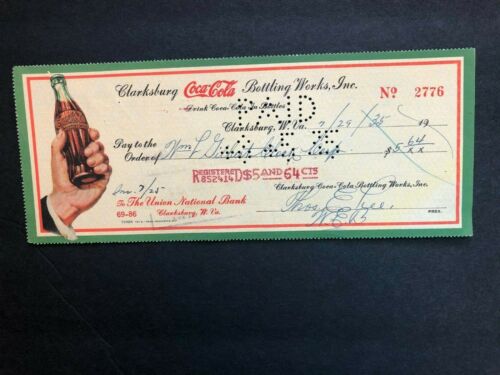 Clarksburg Coca-Cola Bottling Works, Inc.
Drink Coca-Cola In Bottles
Nº 2776
PAID
Clarksburg, W. Va. 7/29/35 19
Pay to the
Order of Wm L $5 64/xx
REGISTERED
R852414D $5 AND 64 CTS
Clarksburg Coca-Cola Bottling Works, Inc.
Inv. 7/25
To The Union National Bank
69-86 Clarksburg, W. Va.
Thos E.
PRES.